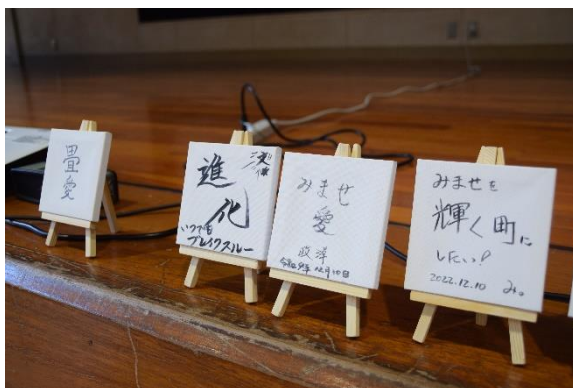 畳
愛
進
化
いつでも
ブレイクスルー
みませ
愛
令和4年12月10日
みませを
輝く町に
したい!
2022.12.10 み。